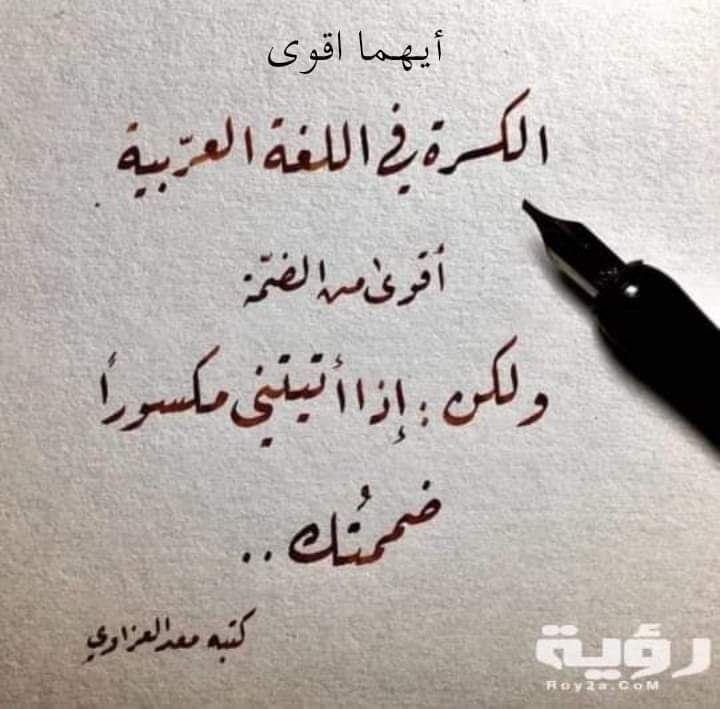 أيهما اقوى
الكسرة في اللغة العرّبية
أقوىٰ من الضمّة
ولكن : إذا أتيتني مكسوراً
ضممتُك ..
كتبه معد العزاوي
رؤية
Roy2a.CoM